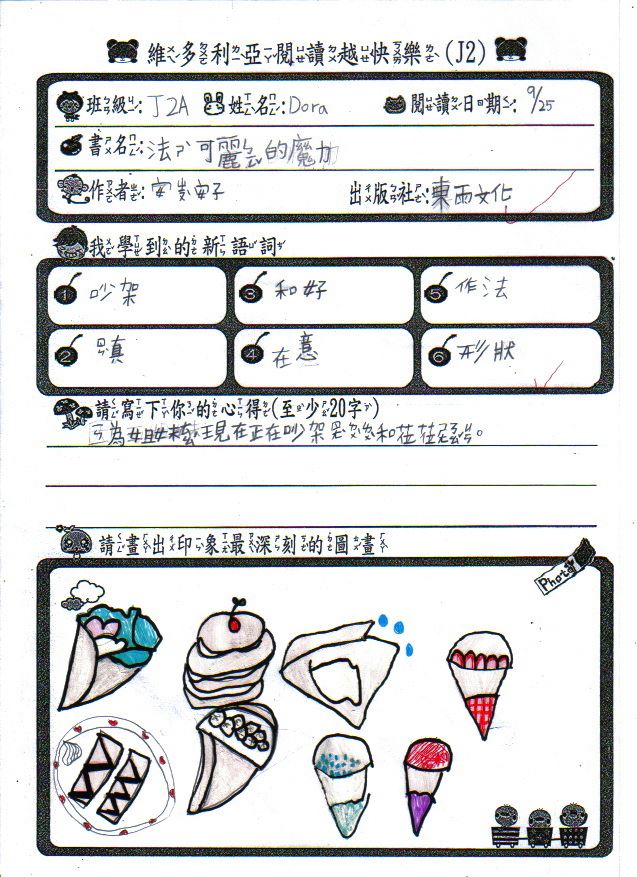 維多利亞閱讀越快樂(J2)
班級: J2A 姓名: Dora 閱讀日期: 9/25
書名: 法ㄕˊ可麗ㄅㄧㄥˇ的魔力
作者: 安出版社: 東雨文化
我學到的新語詞
1 吵架 3 和好 5 作法
2 4 在意 6 形狀
請寫下你的心得(至少20字)
為姐妹現在正在吵架和花花。
請畫出印象最深刻的圖畫
Photo